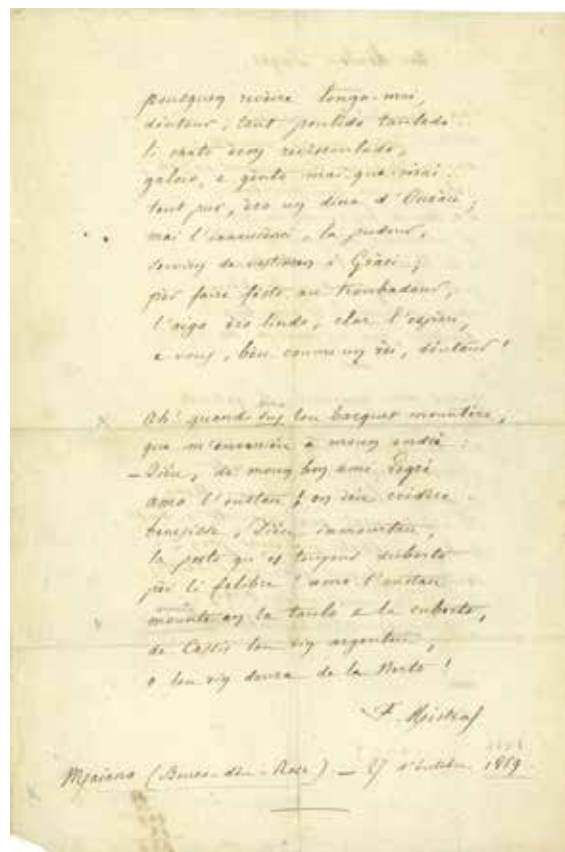 pousquen reveire longo-mai,
douteur, tant poulido taulado
li chato èron
galoio, e gènto mai que mai.
tout pur, èro un dina d'Ouràci;
mai l'innoucènci, la pudour,
servien de vestimen i Gràci;
pèr faire fèsto au troubadour,
l'aigo èro lindo, clar l'espèr,
e vous, bèu coume un rèi, douteur!
Ah! quand sus lou barquet mountère,
que m'enveniéu à moun endré:
– Diéu, de moun bon ami Legré
amo l'oustau! en iéu cridère.
benesisse, Diéu inmourtau,
la porto qu'es toujour duberto
pèr li felibre! amo l'oustau
mounte an la taulo e la cuberto,
de Cassis lou vin argentau,
o lou vin daura de la Nerto!
F. Mistral
Maiano (Bouco-dóu-Rose) – 27 d'óutobre 1859.